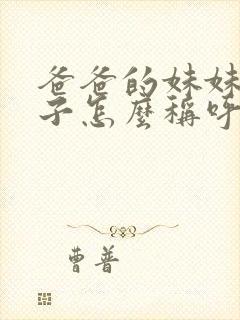 爸爸的妹妹
子怎麼稱呼
曹普